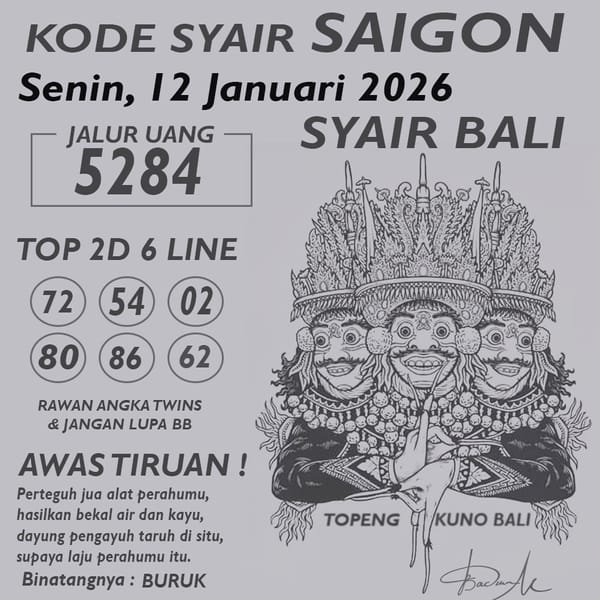 KODE SYAIR SAIGON
Senin, 12 Januari 2026
JALUR UANG
5284
SYAIR BALI
TOP 2D 6 LINE
72 54 02
80 86 62
RAWAN ANGKA TWINS
& JANGAN LUPA BB
AWAS TIRUAN !
Perteguh jua alat perahumu,
hasilkan bekal air dan kayu,
dayung pengayuh taruh di situ,
supaya laju perahumu itu.
Binatangnya : BURUK
TOPENG KUNO BALI